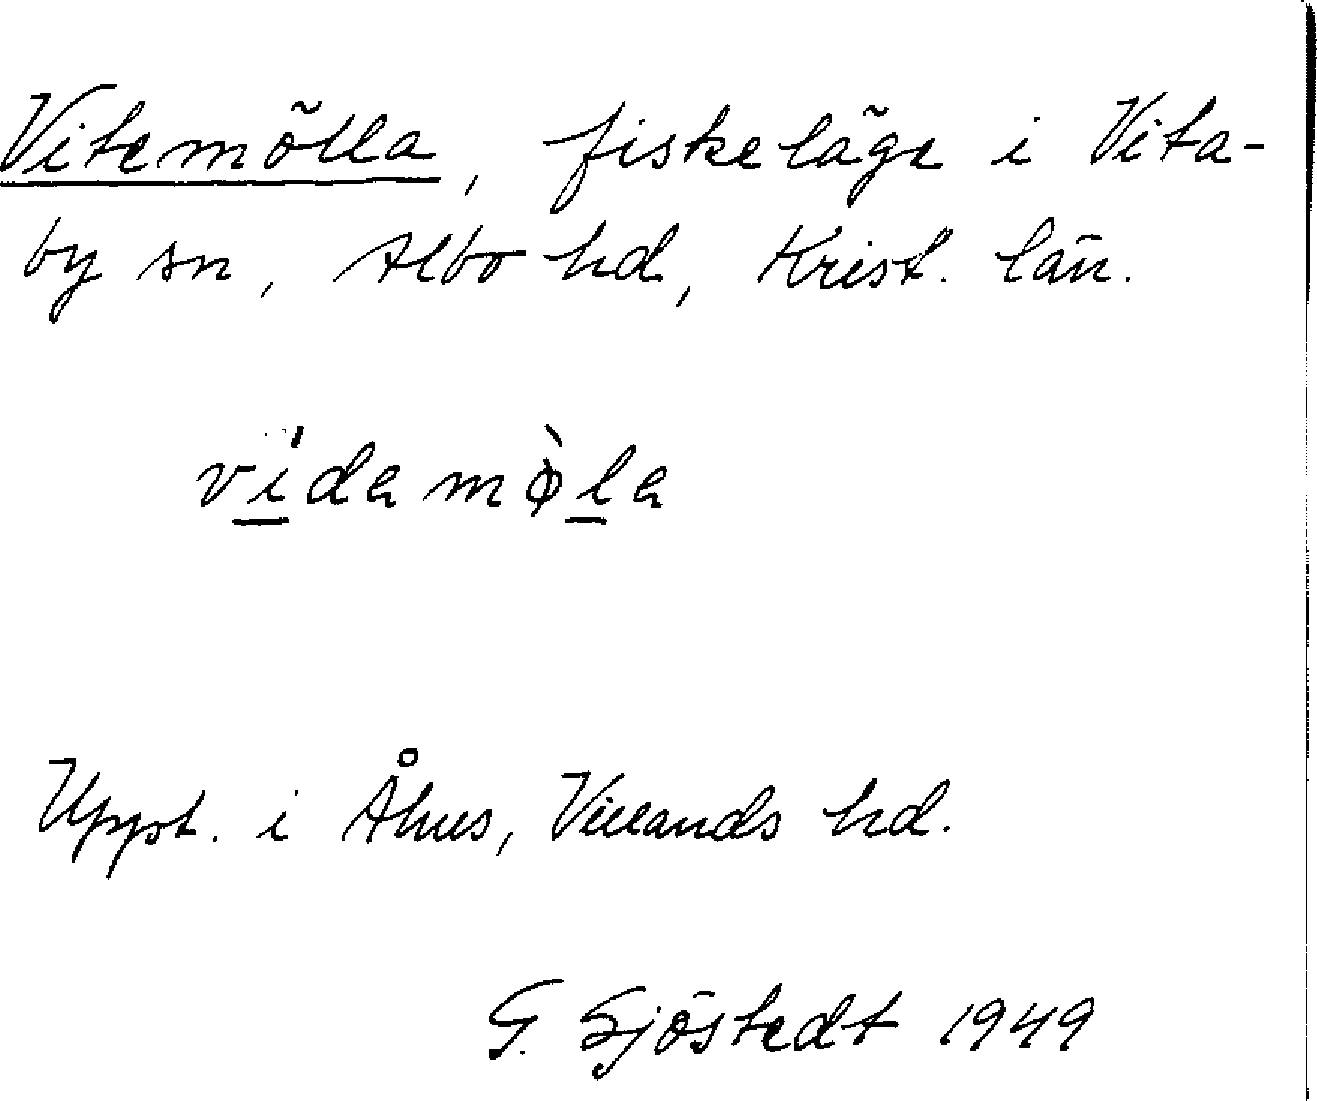 Vitemölla, fiskeläge i Vita-
by sn, Albo hd, Krist. län.
vídamø̀la
Uppt. i Åhus, Villands hd.
G. Sjöstedt 1949